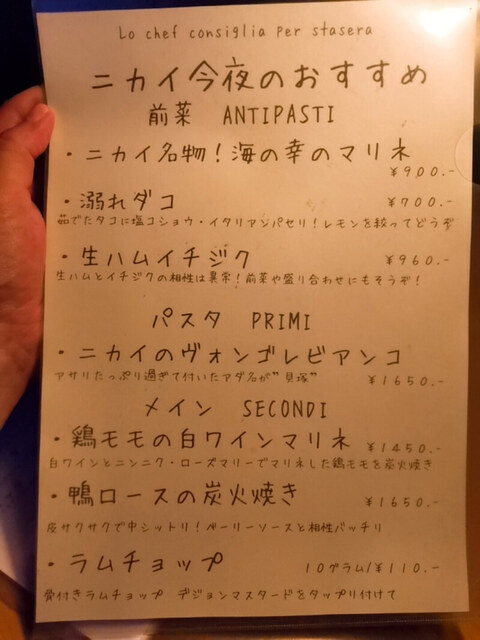 Lo chef consiglia per stasera
ニカイ今夜のおすすめ
前菜 ANTIPASTI
・ニカイ名物！海の幸のマリネ
¥900.-
・溺れダコ ¥700.-
茹でたタコに塩コショウ・イタリアンパセリ！レモンを絞ってどうぞ
・生ハムイチジク ¥960.-
生ハムとイチジクの相性は異常！前菜や盛り合わせにもそうぞ！
パスタ PRIMI
・ニカイのヴォンゴレビアンコ
アサリたっぷり過ぎて付いたアダ名が”貝塚” ¥1650.-
メイン SECONDI
・鶏モモの白ワインマリネ ¥1450.-
白ワインとニンニク・ローズマリーでマリネした鶏モモを炭火焼き
・鴨ロースの炭火焼き ¥1650.-
皮サクサクで中シットリ！ベーリーソースと相性バッチリ
・ラムチョップ 10グラム/¥110.-
骨付きラムチョップ デジョンマスタードをタップリ付けて